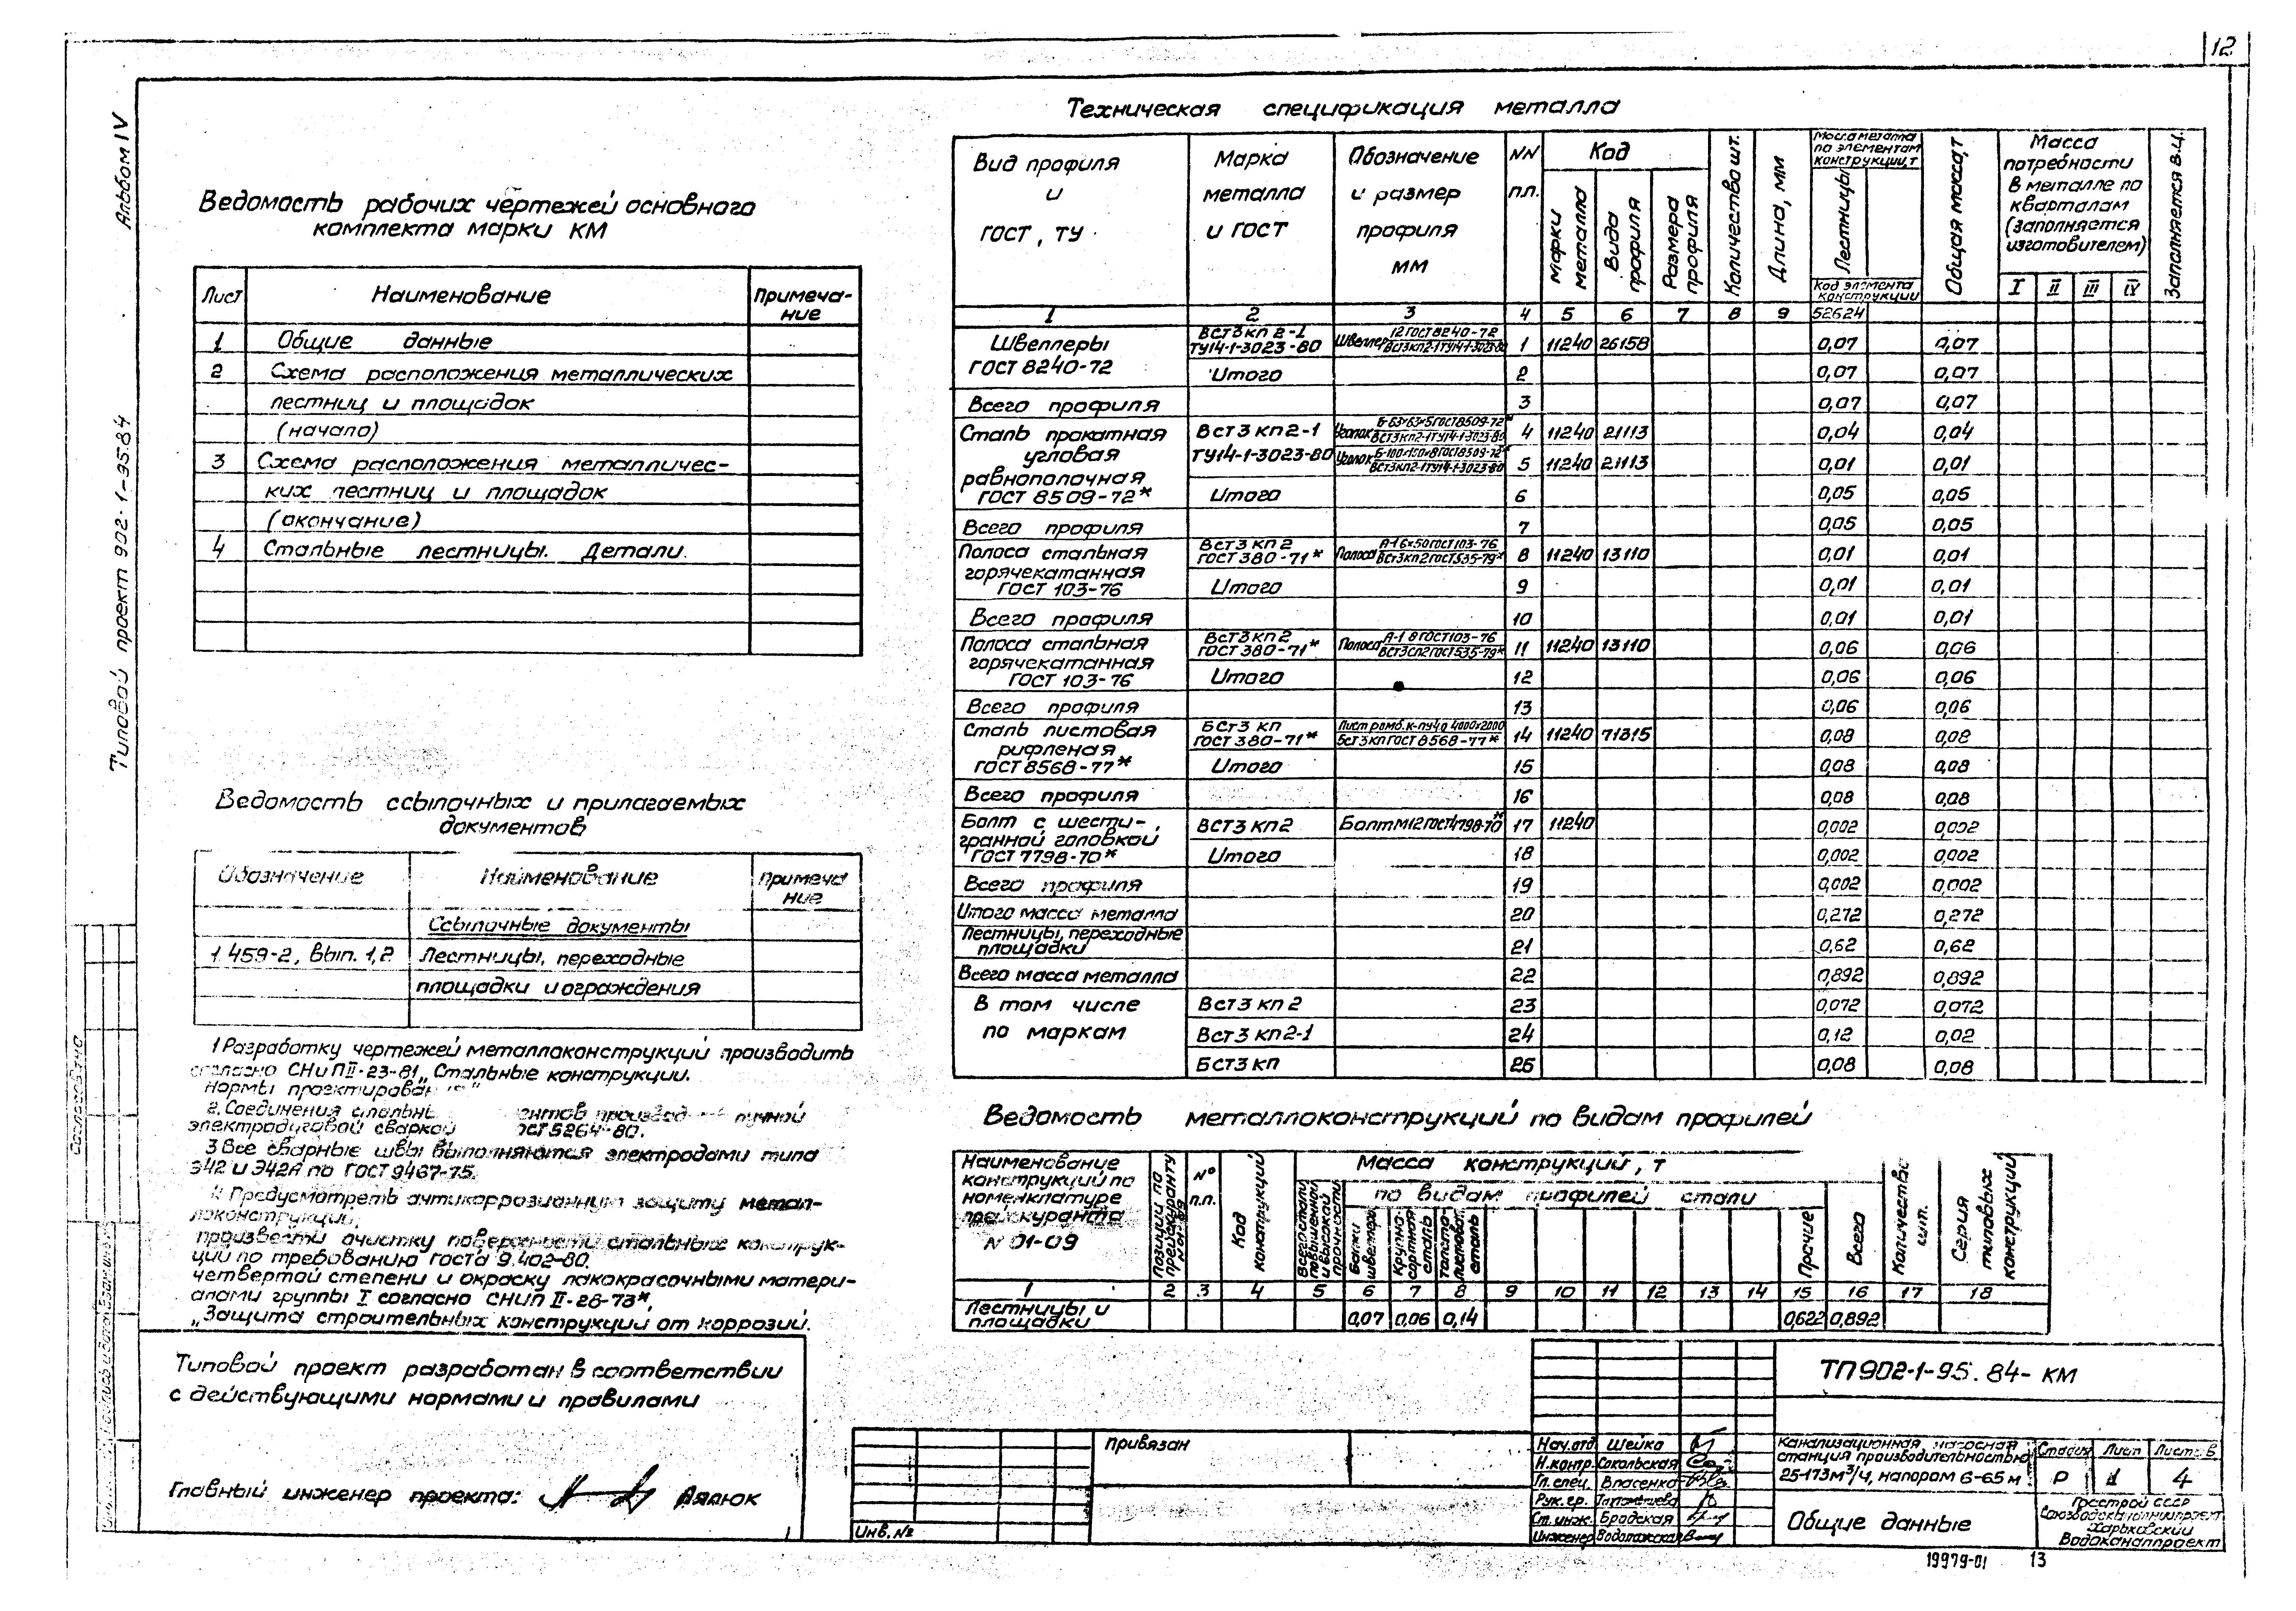 12
Альбом IV
Типовой проект 902-1-95.84
Ведомость рабочих чертежей основного
комплекта марки КМ
Лист Наименование Примеча-
ние
1 Общие данные
2 Схема расположения металлических
лестниц и площадок
(начало)
3 Схема расположения металличес-
ких лестниц и площадок
(окончание)
4 Стальные лестницы. Детали.
Ведомость ссылочных и прилагаемых
документов
Обозначение Наименование Примеча
ние
Ссылочные документы
1 459-2, вып. 1,2 Лестницы, переходные
площадки и ограждения
1 Разработку чертежей металлоконструкций производить
согласно СНиП II-23-81 „Стальные конструкции.
нормы проектирован
2. Соединения стальны ентов производ ручной
электродуговой сваркой ОСТ 5264-80.
3 Все сварные швы выполняются электродами типа
Э42 и Э42А по ГОСТ 9467-75.
Предусмотреть антикоррозионную защиту метал-
локонструкций,
произвести очистку поверхности стальных конструк-
ций по требованию госта 9.402-80.
четвертой степени и окраску лакокрасочными матери-
алами группы I согласно СНиП II-28-73*,
„Защита строительных конструкций от коррозий.
Типовой проект разработан в соответствии
с действующими нормами и правилами
Главный инженер проекта: Дялюк
Техническая спецификация металла
Вид профиля и ГОСТ, ТУ
Марка металла и ГОСТ
Обозначение и размер профиля мм
NN п.п.
Код
марки металла
Вида профиля
Размера профиля
Количество шт.
Длина, мм
Масса металла по элементам конструкции, т
Лестницы
Код элемента конструкции
Общая масса, т
Масса потребности в металле по кварталам (заполняется изготовителем)
I II III IV
Заполняется в.ц.
1 2 3 4 5 6 7 8 9 52624
Швеллеры ГОСТ 8240-72 Вст3кп2-1 ТУ14-1-3023-80 Швеллер 12 ГОСТ 8240-72 Вст3кп2-1 ТУ14-1-3023-80 1 11240 26158 0,07 0,07
Итого 2 0,07 0,07
Всего профиля 3 0,07 0,07
Сталь прокатная угловая равнополочная ГОСТ 8509-72* Вст3кп2-1 ТУ14-1-3023-80 Уголок Б-63×63×5 ГОСТ 8509-72* Вст3кп2-1 ТУ14-1-3023-80 4 11240 21113 0,04 0,04
Уголок Б-100×100×8 ГОСТ 8509-72* Вст3кп2-1 ТУ14-1-3023-80 5 11240 21113 0,01 0,01
Итого 6 0,05 0,05
Всего профиля 7 0,05 0,05
Полоса стальная горячекатанная ГОСТ 103-76 Вст3кп2 ГОСТ 380-71* Полоса А-1 6×50 ГОСТ 103-76 Вст3кп2 ГОСТ 535-79* 8 11240 13110 0,01 0,01
Итого 9 0,01 0,01
Всего профиля 10 0,01 0,01
Полоса стальная горячекатанная ГОСТ 103-76 Вст3кп2 ГОСТ 380-71* Полоса А-1 8 ГОСТ 103-76 Вст3сп2 ГОСТ 535-79* 11 11240 13110 0,06 0,06
Итого 12 0,06 0,06
Всего профиля 13 0,06 0,06
Сталь листовая рифленая ГОСТ 8568-77* БСт3 кп ГОСТ 380-71* Лист ромб. К-ПУ 4,0 4000×2000 Бст3кп ГОСТ 8568-77* 14 11240 71315 0,08 0,08
Итого 15 0,08 0,08
Всего профиля 16 0,08 0,08
Болт с шести-гранной головкой ГОСТ 7798-70* Вст3 кп2 Болт М12 ГОСТ 4798-70* 17 11240 0,002 0,002
Итого 18 0,002 0,002
Всего профиля 19 0,002 0,002
Итого масса металла 20 0,272 0,272
Лестницы, переходные площадки 21 0,62 0,62
Всего масса металла 22 0,892 0,892
В том числе по маркам Вст3 кп2 23 0,072 0,072
Вст3 кп2-1 24 0,12 0,02
Бст3 кп 25 0,08 0,08
Ведомость металлоконструкций по видам профилей
Наименование конструкций по номенклатуре прейскуранта N 01-09
Позиции по прейскуранту N 01-09
N° п.п.
Код конструкций
Масса конструкций, т
Всего стали повышенной и высокой прочности
по видам профилей стали
Балки швеллеры
Крупно-сортная сталь
Толсто-листовая сталь
Прочие
Всего
Количество шт.
Серия типовых конструкций
1 2 3 4 5 6 7 8 9 10 11 12 13 14 15 16 17 18
Лестницы и площадки 0,07 0,06 0,14 0,622 0,892
Привязан
Инв. №
ТП 902-1-95.84-КМ
Нач.отд. Шейко
Н.контр. Сокольская
Гл.спец. Власенко
Рук.гр.
Ст.инж. Бродская
Инженер Водолажская
Канализационная насосная
станция производительностью
25-173 м³/ч, напором 6-65 м
Стадия Лист Листов
Р 1 4
Общие данные
Госстрой СССР
Союзводоканалниипроект
Харьковский
Водоканалпроект
19979-01 13